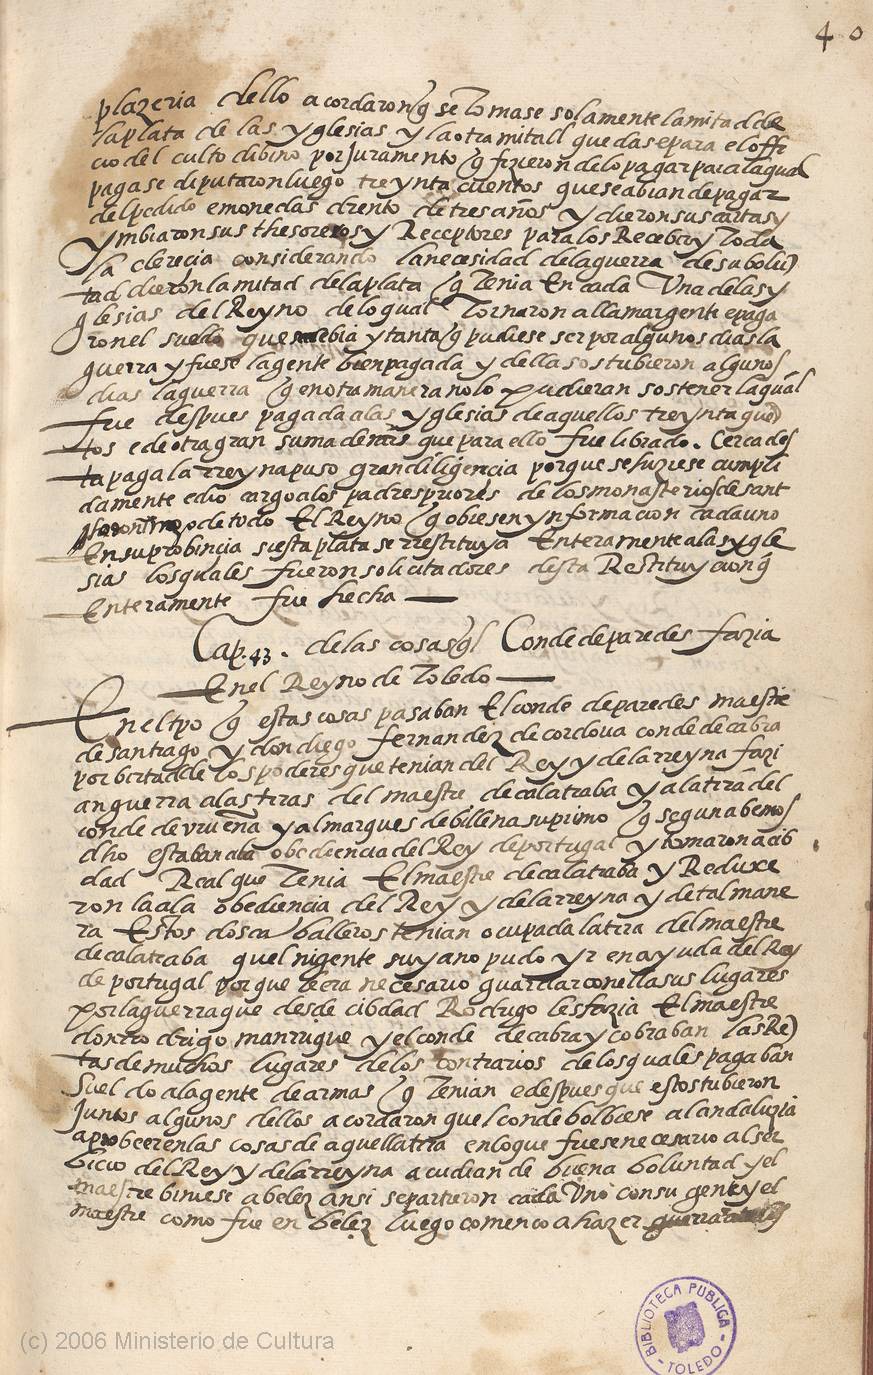 40
plazeria dello acordaron q̃ se tomase solamente la mitad de
la plata de las yglesias y la otra mitall quedase para el offi
cio del culto dibino por Juramento q̃ fizieron de lo pagar para la qual
paga se diputaron luego treynta cuentos que se abian de pagar
del pedido e monedas drento de tres años y dieron sus cartas y
ymbiaron sus thesoreros y Receptores para los Recebir y toda
la clerecia considerando la necesidad de la guerra de su bolū
tad dieron la mitad de la plata q̃ tenia En cada Una de las y
glesias del Reyno de lo qual tornaron a llamar gente e paga
ron el sueldo que se debia y tanta q̃ pudiese ser por algunos dias la
guerra y fuese la gente bien pagada y della sostubieron algunos
dias la guerra q̃ en otra manera no lo pudieran sostener la qual
fue despues pagada a las yglesias de aquellos treynta quē
tos e de otra gran suma de mrs que para ello fue librado. Cerca des
ta paga la rreyna puso gran diligencia porque se fiziese cumpli
damente e dio cargo a los padres priores de los monasterios de sant
Jeronimo de todo El Reyno q̃ obiesen ynformacion cada uno
En su probincia si esta plata se rrestituya Enteramente a las ygle
sias los quales fueron solicitadores desta Restituycion q̃
Enteramente fue hecha
Cap. 43. de las cosas q̃l Conde de paredes fazia
En el Reyno de Toledo
En el tpo q̃ estas cosas pasaban El conde de paredes maestre
de santiago y don diego fernandez de cordova conde de cabra
por birtad de los poderes que tenian del Rey y de la rreyna fazi
an guerra a las tiras del maestre de calatraba y a la tira del
conde de vruena y al marques de billena su primo q̃ segun abemos
dho estaban a la obediencia del Rey de portugal y tomaron a cib
dad Real que tenia El maestre de calatraba y Reduxe
ron la a la obediencia del Rey y de la rreyna y de tal mane
ra Estos dos caballeros tenian ocupada la tira del maestre
de calatraba quel ni gente suya no pudo yr en ayuda del Rey
de portugal porque le era necesario guardar con ella sus lugares
por la guerra que desde cibdad Rodrigo les fazia El maestre
don rrodrigo manrrique y el conde de cabra y cobraban las Rē
tas de muchos lugares de los contrarios de los quales pagaban
sueldo a la gente de armas q̃ tenian e despues que estos tubieron
Juntos algunos dellos acordaron quel conde bolbiese al andaluzia
a probeer en las cosas de aquella tira en lo que fuese necesario al ser
bicio del Rey y de la rreyna acudian de buena boluntad y el
maestre biniese a belez ansi se partieron cada Uno con su gente y el
maestre como fue en belez luego comenco a hazer guerra
(c) 2006 Ministerio de Cultura
BIBLIOTECA PÚBLICA
TOLEDO